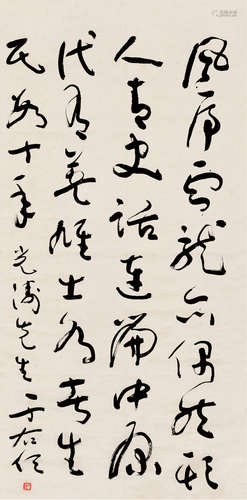 風虎雲龍亦偶然欺
人青史話連篇中原
代有英雄出各苦生
民數十年 光濤先生 于右任